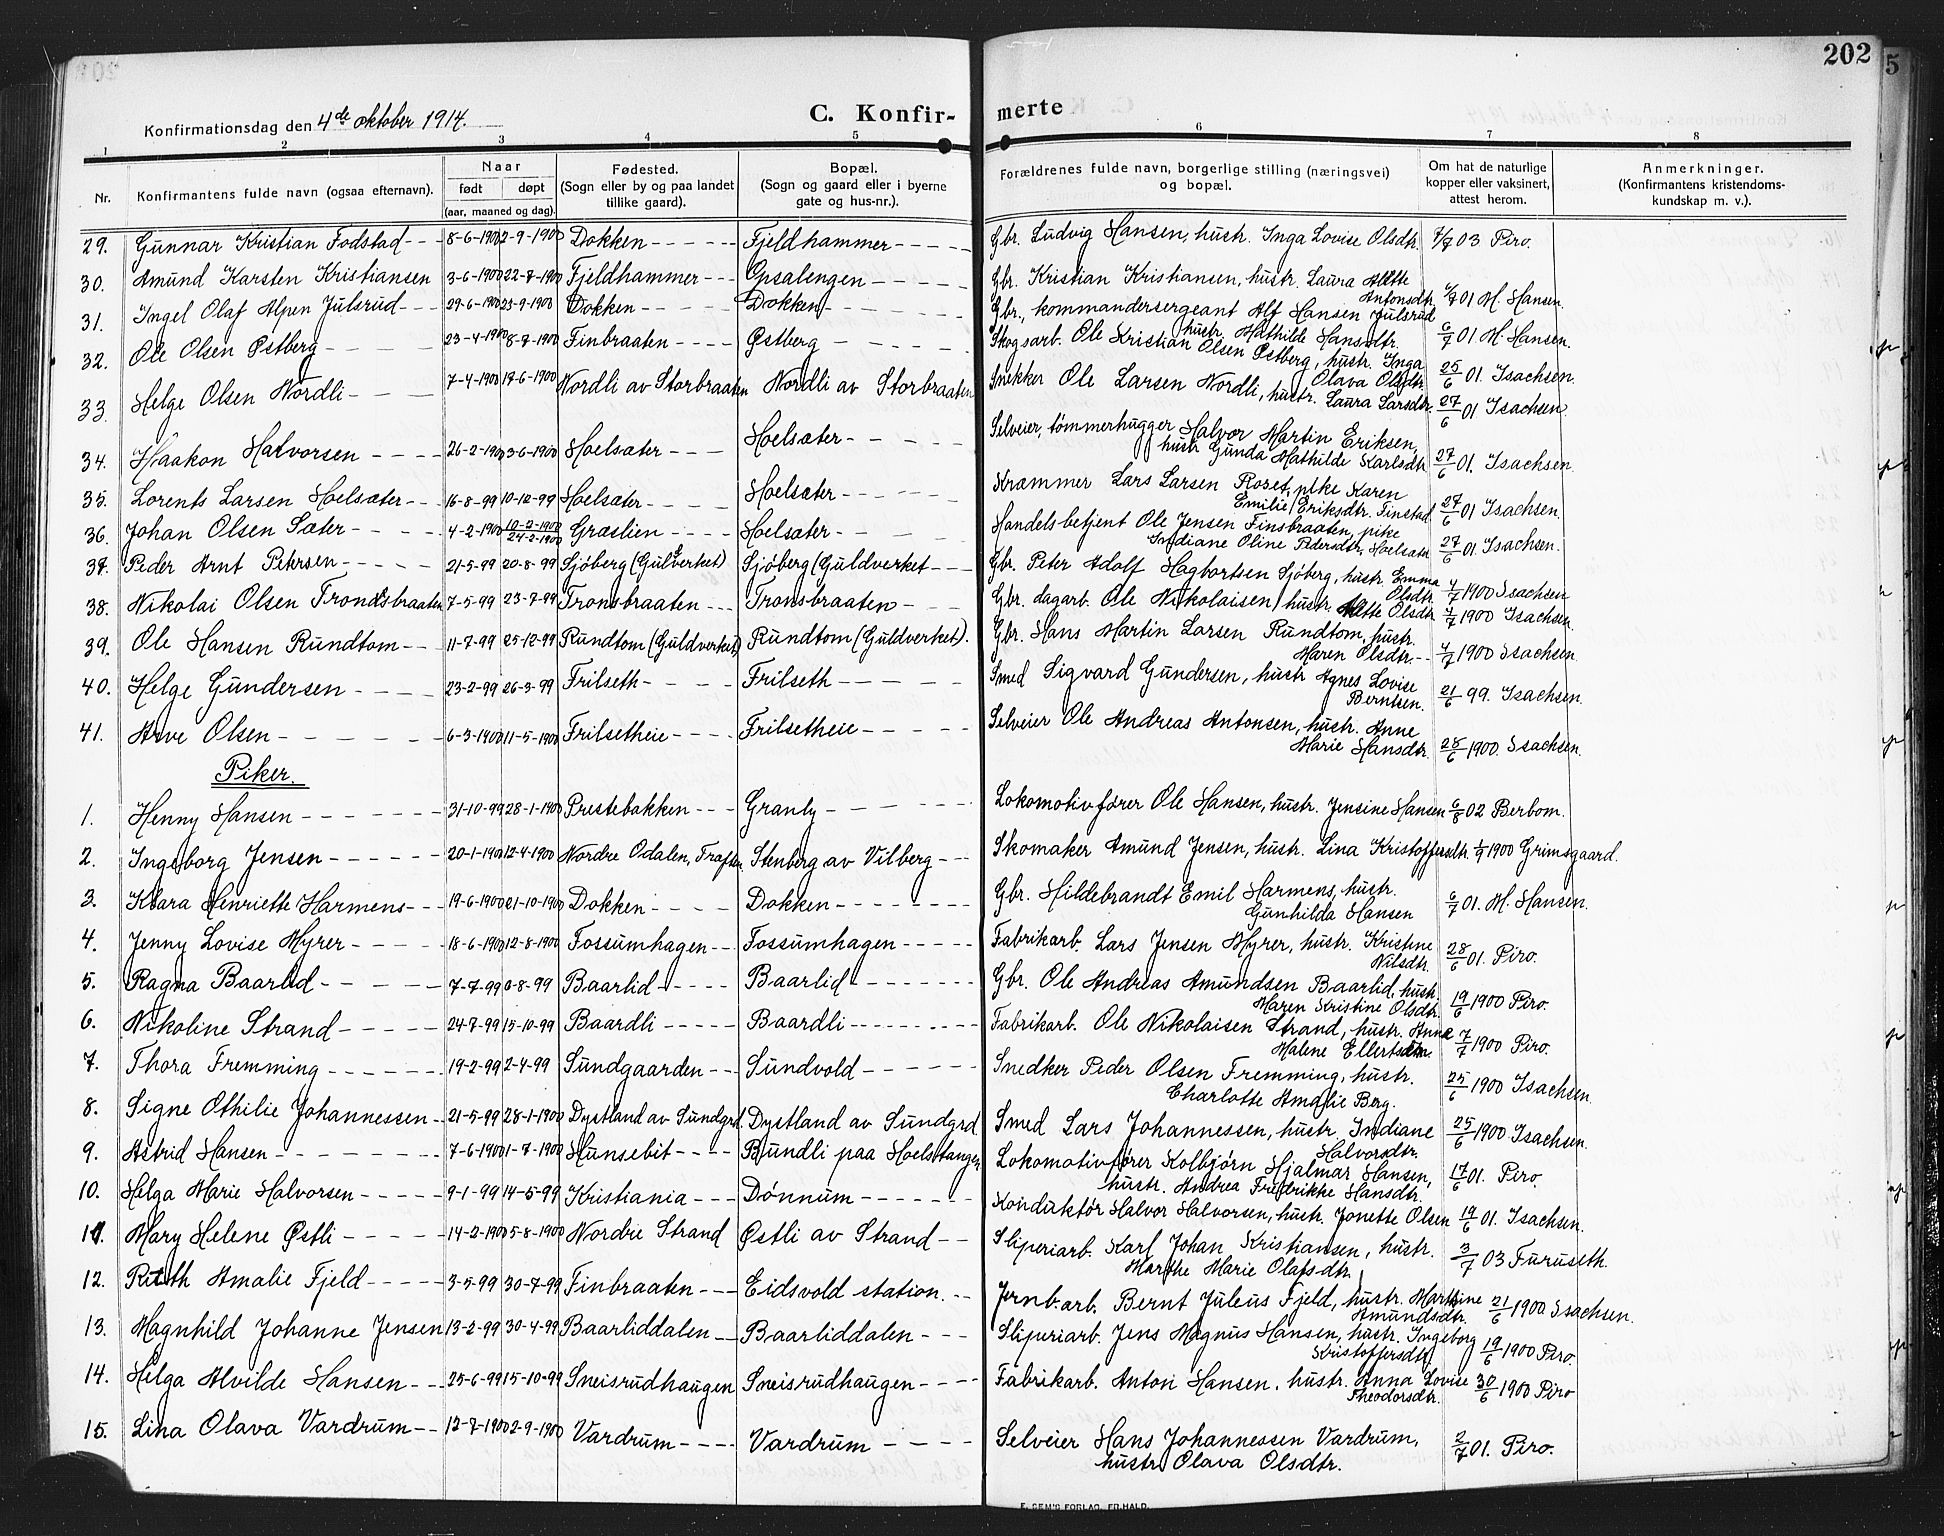 202
5
Konfirmationsdag den 4de oktober 1914.
C. Konfir- merte
1 2 3 4 5 6 7 8
Nr.
Konfirmantens fulde navn (ogsaa efternavn).
Naar
født døpt
(aar, maaned og dag).
Fødested.
(Sogn eller by og paa landet
tillike gaard).
Bopæl.
(Sogn og gaard eller i byerne
gate og hus-nr.).
Forældrenes fulde navn, borgerlige stilling (næringsvei)
og bopæl.
Om hat de naturlige
kopper eller vaksinert,
attest herom.
Anmerkninger.
(Konfirmantens kristendoms-
kundskap m. v.).
29. Gunnar Kristian Fodstad 8-6-1900 2-9-1900 Dokken Fjeldhammer Gbr. Ludvig Hansen, hustr. Inga Lovise Olsdtr. 7/7 03 Piro.
30. Amund Karsten Kristiansen 3-6-1900 22-7-1900 Fjeldhammer Opsalengen Gbr. Kristian Kristiansen, hustr. Laura Alette
Antonsdtr. 01 M. Hansen.
31. Ingel Olaf Alpen Julsrud 29-6-1900 23-9-1900 Dokken Dokken Gbr., kommandersergeant Alf Hansen Julsrud
hustr. Mathilde Hansdtr. 6/7 01 M. Hansen.
32. Ole Olsen Østberg 23-4-1900 8-7-1900 Finbraaten Østberg Skogsarb. Ole Kristian Olsen Østberg, hustr. Inga
Olava Olsdtr. 25/6 01. Isachsen.
33. Helge Olsen Nordli 7-4-1900 17-6-1900 Nordli av Storbraaten Nordli av Storbraaten Snekker Ole Larsen Nordli, hustr. Laura Larsdtr. 27/6 01 Isachsen.
34. Haakon Halvorsen 26-2-1900 3-6-1900 Hoelsæter Hoelsæter Selveier, tømmerhugger Halvor Martin Eriksen,
hustr Gunda Mathilde Karlsdtr. 27/6 01. Isachsen.
35. Lorents Larsen Hoelsæter 16-8-99 10-12-99 Hoelsæter Hoelsæter Kræmmer Lars Larsen Roset, pike Karen
Emilie Eriksdtr. Finstad 27/6 01 Isachsen.
36. Johan Olsen Sæter 4-2-1900 10-2-1900 24-2-1900 Græslien Hoelsæter Handelsbetjent Ole Jensen Finsbraaten, pike
Indiane Oline Pedersdtr, Hoelsætr. 27/6 01. Isachsen.
37. Peder Arnt Petersen 21-5-99 20-8-99 Sjöberg (Guldverket) Sjöberg (Guldverket Gbr. Peter Adolf Hagbortsen Sjöberg, hustr. Emma
Olsdtr. 4/7 1900 Isachsen
38. Nikolai Olsen Tronsbraaten 7-5-99 23-7-99 Tronsbraaten Tronsbraaten Gbr. dagarb. Ole Nikolaisen, hustr. Mette Olsdtr. 4/7 1900 Isachsen.
39. Ole Hansen Rundtom 11-7-99 25-12-99 Rundtom (Guldverket) Rundtom (Guldverket). Gbr. Hans Martin Larsen Rundtom, hustr.
Maren Olsdtr. 4/7 1900 Isachsen
40. Helge Gundersen 23-2-99 26-3-99 Frilseth Frilseth Smed Sigvard Gundersen, hustr Agnes Lovise
Berntsen. 21/6 99. Isachsen.
41. Arve Olsen 6-3-1900 11-5-1900 Frilsetheie Frilsetheie Selveier Ole Andreas Antonsen, hustr. Anne
Marie Hansdtr. 28/6 1900. Isachsen.
Piker.
1. Henny Hansen 31-10-99 28-1-1900 Prestebakken Granly Lokomotivfører Ole Hansen, hustr. Jensine Hansen 6/8 02 Berbom.
2. Ingeborg Jensen 20-1-1900 12-4-1900 Nordre Odalen, Stenberg av Vilberg Skomaker Amund Jensen, hustr. Lina Kristoffersdtr. 1/9 1900 Grimsgaard.
3. Klara Henriette Harmens 19-6-1900 21-10-1900 Dokken Dokken Gbr. Hildebrandt Emil Harmens, hustr.
Gunhilda Hansen 6/7 01. M. Hansen.
4. Jenny Lovise Myrer 18-6-1900 12-8-1900 Fossumhagen Fossumhagen Fabrikarb. Lars Jensen Myrer, hustr. Kristine
Nilsdtr. 28/6 01. Piro.
5. Ragna Baarlid 7-7-99 0-8-99 Baarlid Baarlid Gbr. Ole Andreas Amundsen Baarlid, hustr.
Maren Kristine Olsdtr. 19/6 1900 Piro.
6. Nikoline Strand 24-7-99 15-10-99 Baardli Baardli Fabrikarb. Ole Nikolaisen Strand, hustr. Anna
Malene Ellertsdtr. 7/7 1900 Piro.
7. Thora Fremming 19-2-99 2-4-99 Sundgaarden Sundvold Snedker Peder Olsen Fremming, hustr.
Charlotte Amalie Berg. 25/6 1900 Isachsen.
8. Signe Othilie Johannessen 21-5-99 28-1-1900 Dystland av Sundgrd. Dystland av Sundgrd Smed Lars Johannessen, hustr, Indiane
Halvorsdtr. 25/6 1900 Isachsen.
9. Astrid Hansen 7-6-1900 1-7-1900 Hunsebit Bundli paa Hoelstangen Lokomotivfører Kolbjörn Hjalmar Hansen,
hustr. Andrea Fredrikke Hansdtr. 17/6 01. Piro.
10. Helga Marie Halvorsen 9-1-99 14-5-99 Kristiania Dönnum Konduktör Halvor Halvorsen, hustr. Jonette Olsen 19/6 01. Isachsen.
11. Mary Helene Østli 14-2-1900 5-8-1900 Nordre Strand Østli av Strand Sliperiarb. Karl Johan Kristiansen, hustr.
Marthe Marie Olafsdtr. 3/7 03 Furuseth.
12. Ruth Amalie Fjeld 3-5-99 30-7-99 Finbraaten Eidsvold station. Jernb.arb. Bernt Juleus Fjeld, hustr. Marthine
Amundsdtr. 21/6 1900 Isachsen.
13. Magnhild Johanne Jensen 13-2-99 30-4-99 Baarliddalen Baarliddalen Sliperiarb. Jens Magnus Hansen, hustr. Ingeborg
Kristoffersdtr. 19/6 1900 Piro.
14. Helga Alvilde Hansen 25-6-99 15-10-99 Sneisrudhaugen Sneisrudhaugen Fabrikarb. Anton Hansen, hustr. Anna Lovise
Theodorsdtr. 30/6 1900 Piro
15. Lina Olava Vardrum 12-7-1900 2-9-1900 Vardrum Vardrum Selveier Hans Johannessen Vardrum,
hustr. Olava Olsdtr. 2/7 01. Piro.
F. SEM'S FORLAG, FR.HALD.